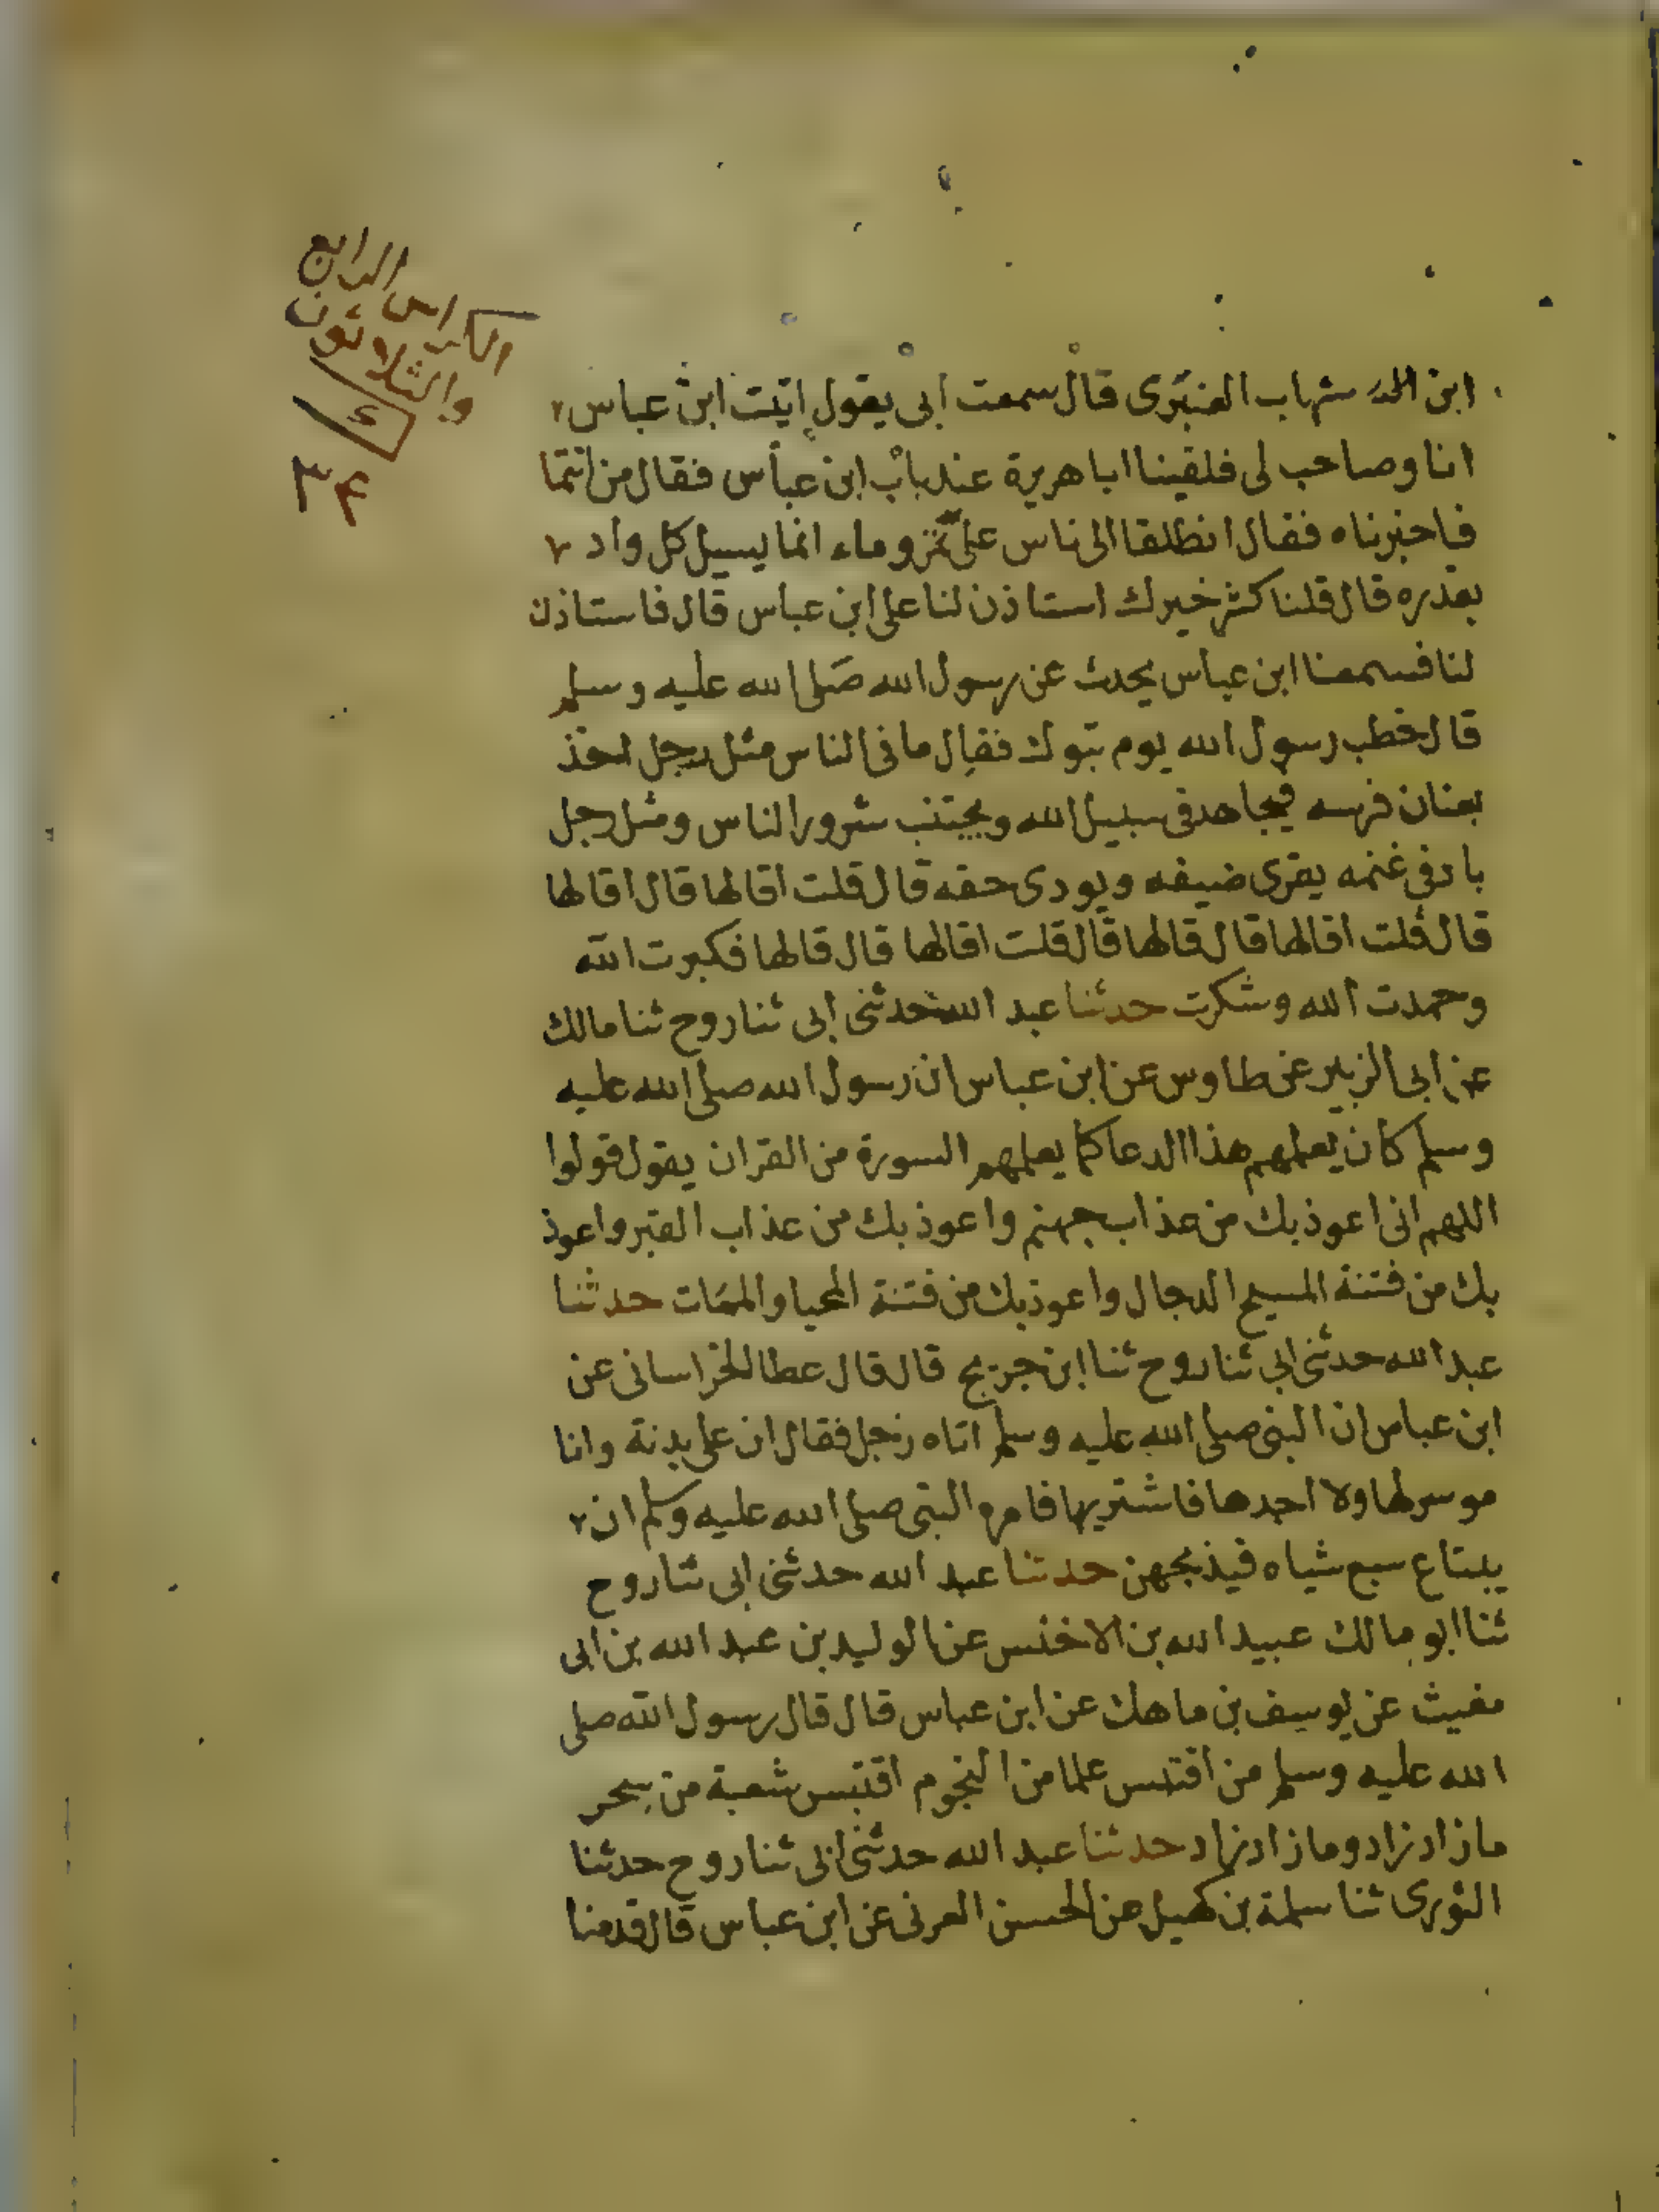 الكراس الرابع
والثلاثون
٣٤
ابن شهاب العنبرى قال سمعت ابى يقول اتيت ابن عباس
انا وصاحب لى فلقينا ابا هريرة عند باب ابن عباس فقال من انتما
فاخبرناه فقال انطلقا الى ناس على تمر وماء انما يسيل كل واد
بقدره قال قلنا كثر خيرك استاذن لنا على ابن عباس قال فاستاذن
لنا فسمعنا ابن عباس يحدث عن رسول الله صلى الله عليه وسلم
قال خطب رسول الله يوم تبوك فقال ما فى الناس مثل رجل اخذ
بعنان فرسه فيجاهد فى سبيل الله ويجتنب شرور الناس ومثل رجل
باد فى غنمه يقرى ضيفه ويودى حقه قال قلت اقالها قال اقالها
قال قلت اقالها قال قالها قال قلت اقالها قال قالها فكبرت الله
وحمدت الله وشكرت حدثنا عبد الله حدثنى ابى ثنا روح ثنا مالك
عن ابى الزبير عن طاوس عن ابن عباس ان رسول الله صلى الله عليه
وسلم كان يعلمهم هذا الدعا كما يعلمهم السورة من القران يقول قولوا
اللهم انى اعوذ بك من عذاب جهنم واعوذ بك من عذاب القبر واعوذ
بك من فتنة المسيح الدجال واعوذ بك من فتنة المحيا والممات حدثنا
عبد الله حدثنى ابى ثنا روح ثنا ابن جريج قال قال عطا الخراسانى عن
ابن عباس ان النبى صلى الله عليه وسلم اتاه رجل فقال ان على بدنة وانا
موسر لها ولا اجدها فاشتريها فامره النبى صلى الله عليه وسلم ان
يبتاع سبع شياه فيذبحهن حدثنا عبد الله حدثنى ابى ثنا روح
ثنا ابو مالك عبيد الله بن الاخنس عن الوليد بن عبد الله بن ابى
مغيث عن يوسف بن ماهك عن ابن عباس قال قال رسول الله صلى
الله عليه وسلم من اقتبس علما من النجوم اقتبس شعبة من سحر
ما زاد زاد وما زاد زاد حدثنا عبد الله حدثنى ابى ثنا روح حدثنا
الثورى ثنا سلمة بن كهيل عن الحسن العرنى عن ابن عباس قال قدمنا